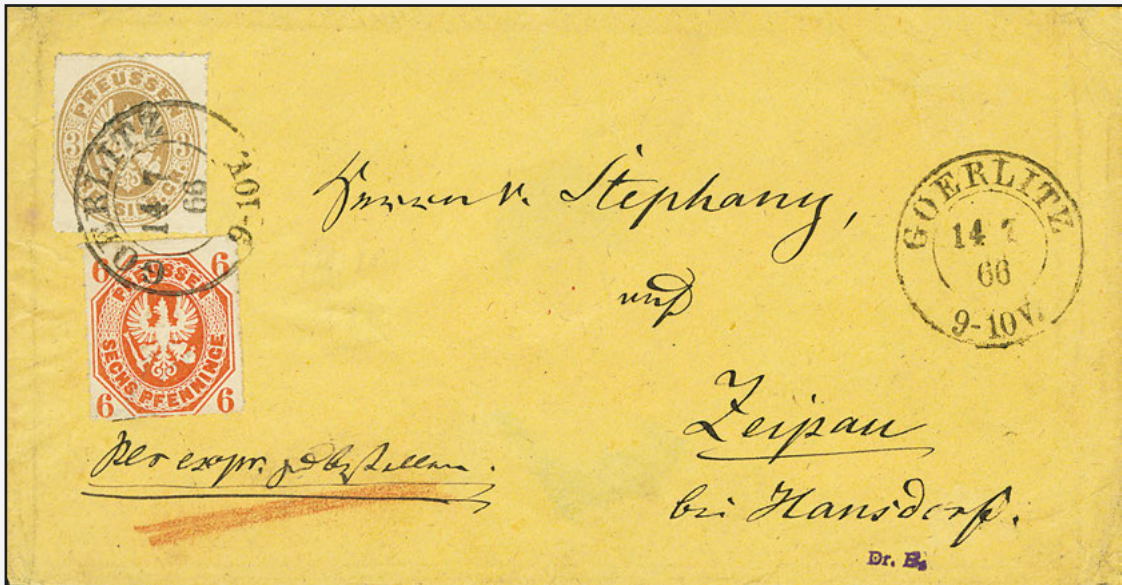 PREUSSEN
3 3
SILB. GR.
GOERLITZ
14 7
66
9-10V.
6 6
PREUSSEN
SECHS PFENNINGE
6 6
Herrn v. Stephany,
auf
Zeipau
bei Hansdorf.
GOERLITZ
14 7
66
9-10V.
Per expr. zu bestellen.
Dr. B.